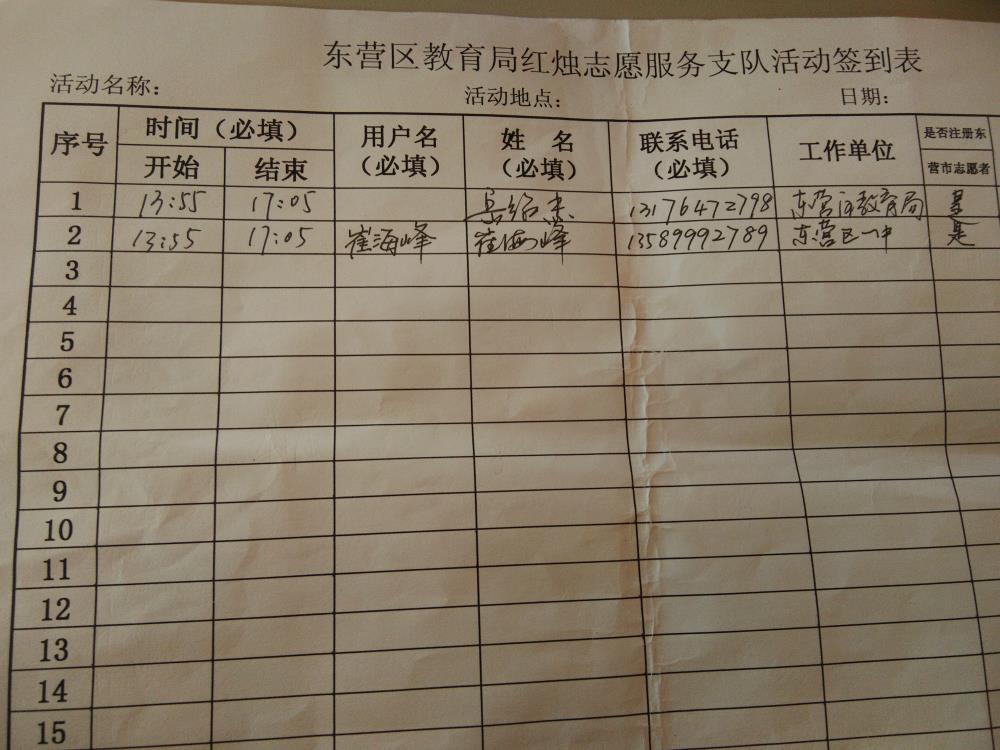 东营区教育局红烛志愿服务支队活动签到表
活动名称： 活动地点： 日期：
序号 时间（必填） 用户名（必填） 姓 名（必填） 联系电话（必填） 工作单位 是否注册东营市志愿者
开始 结束
1 13:55 17:05 13176472798 东营区教育局 是
2 13:55 17:05 崔海峰 崔海峰 13589992789 东营区一中 是
3
4
5
6
7
8
9
10
11
12
13
14
15